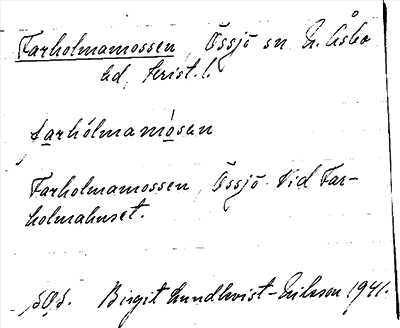 Farholmamossen, Össjö sn N. Åsbo
hd, Krist. l.
farhólmamósan
Farholmamossen, Össjö. Vid Far-
holmahuset.
Birgit Lundkvist-Eriksson 1941.